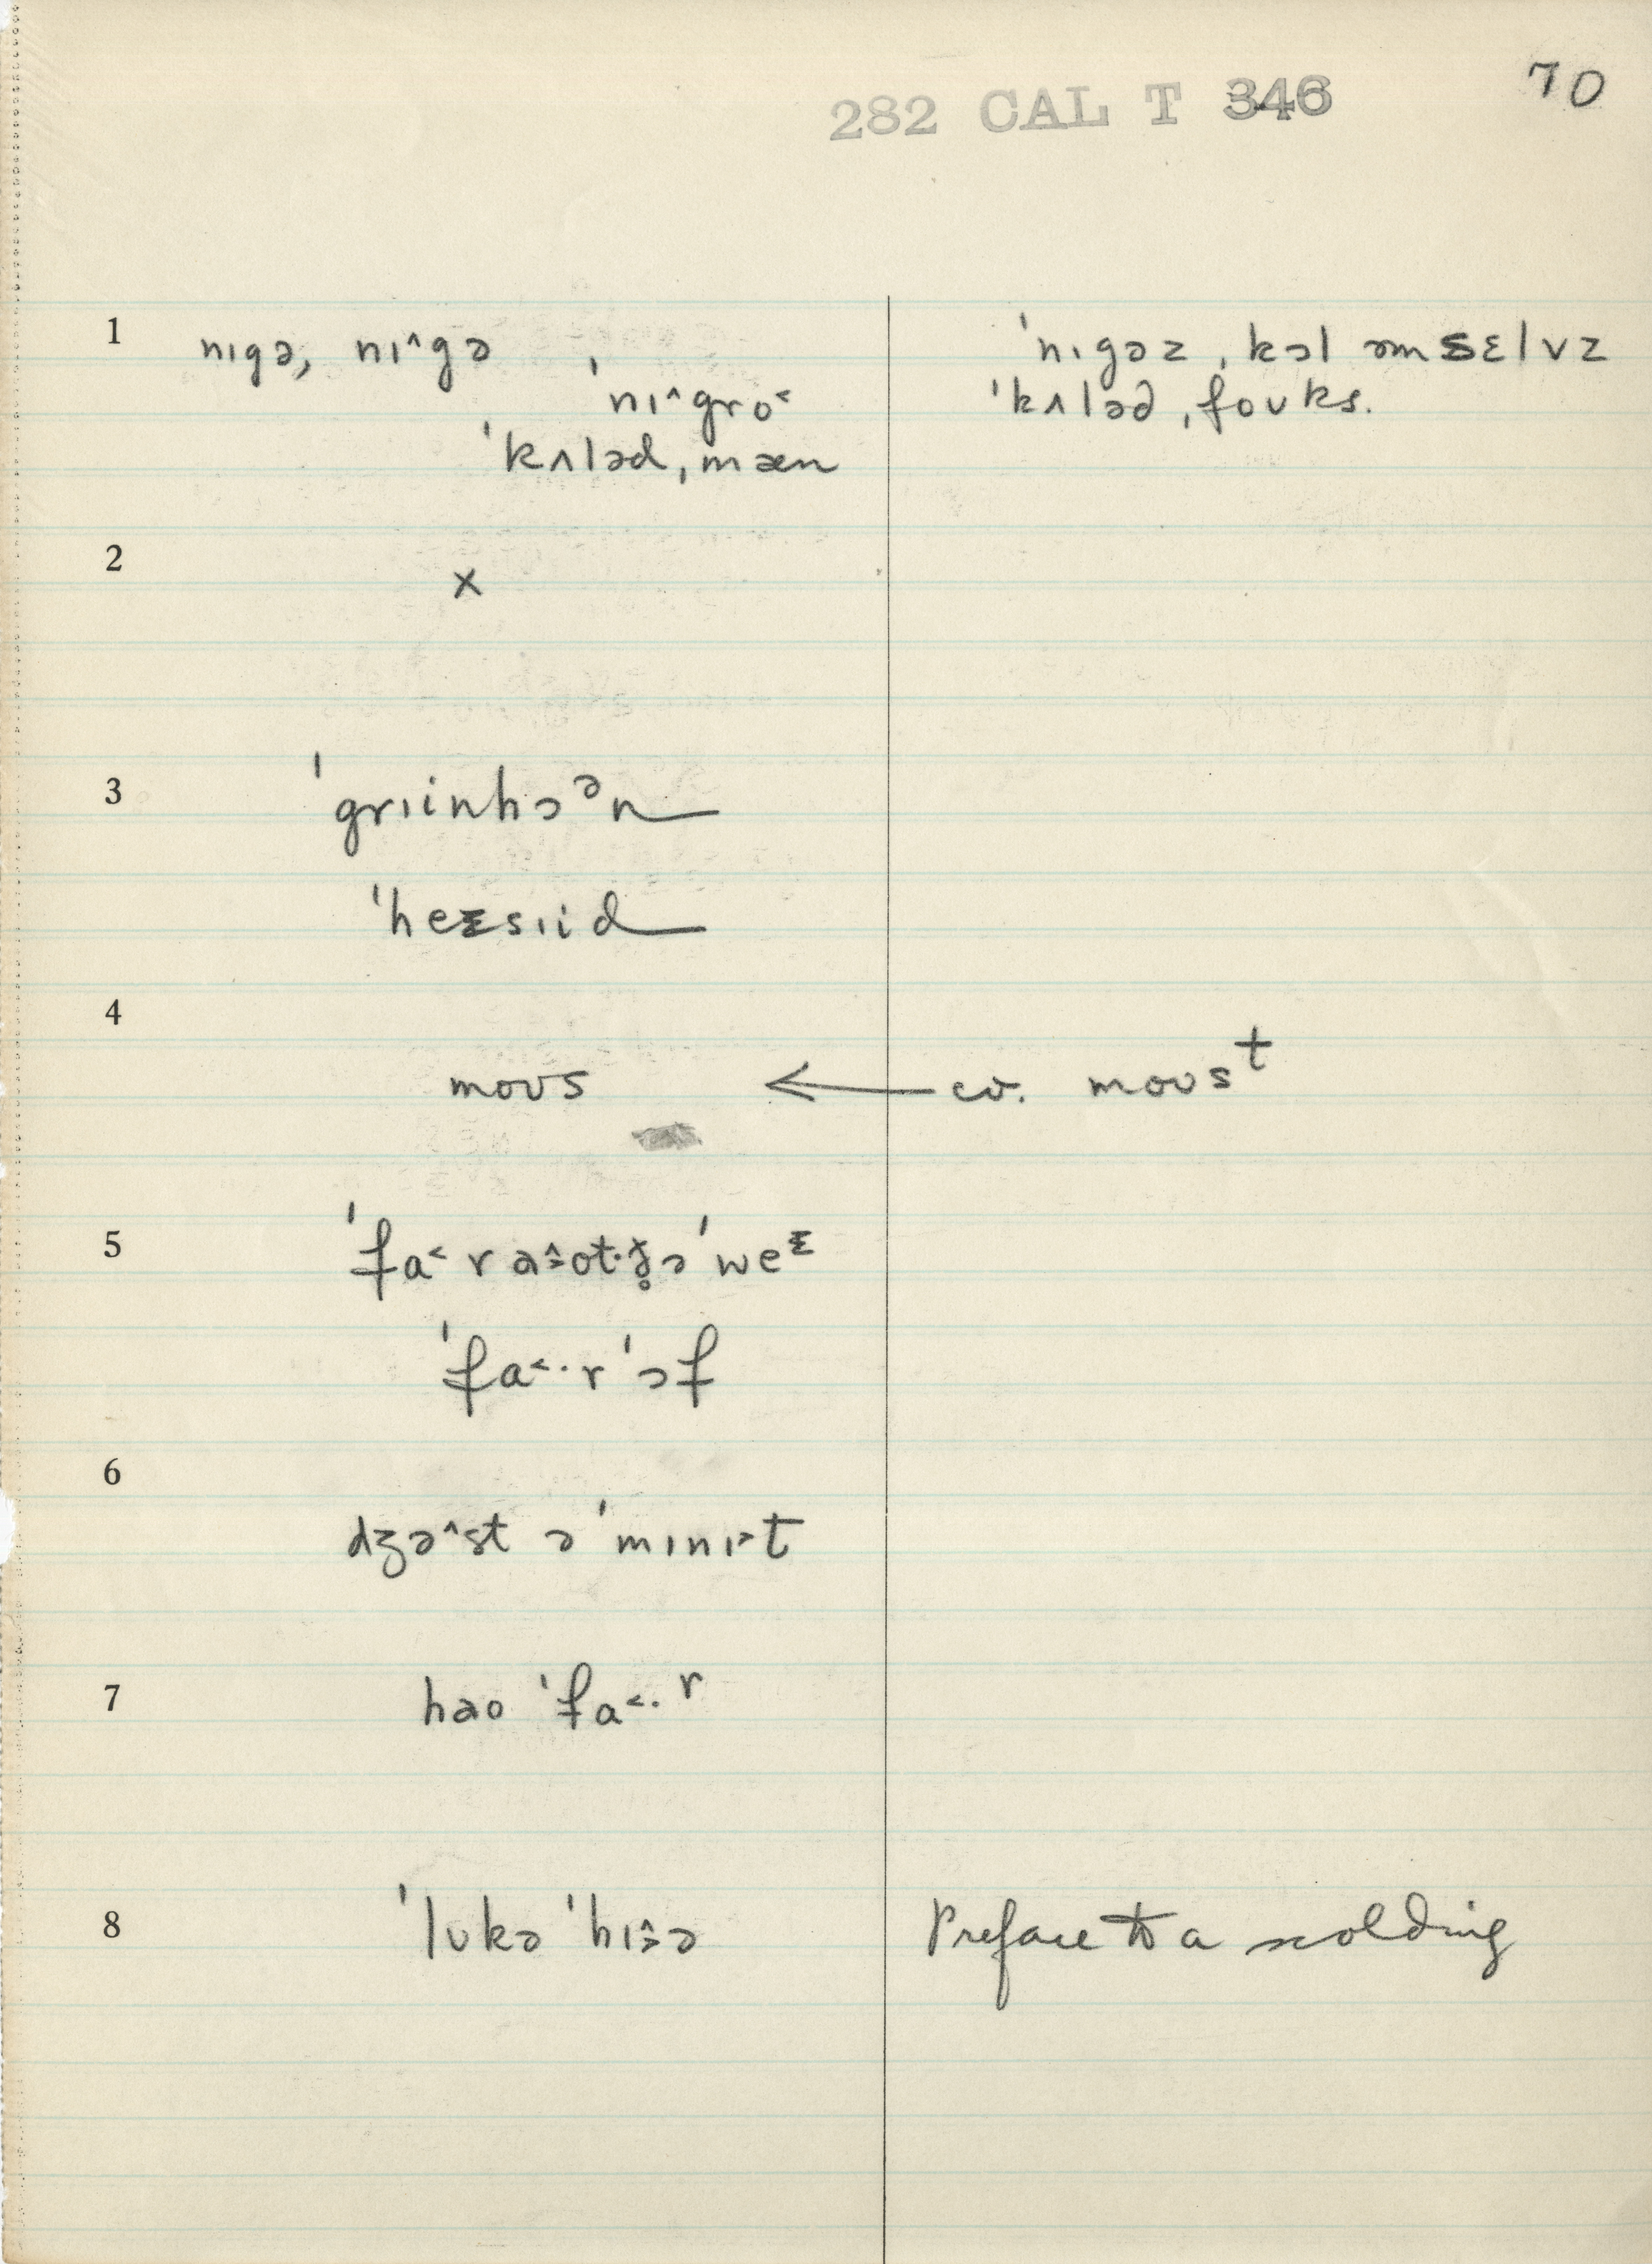 282 CAL T 346
70
1
nɪgə, nɪ^gə
ˈnɪ^gro˂
ˈkʌləd ˌmæn
ˈnɪgəz ˌkɔl əmsɛlvz
ˈkʌləd ˌfoʊks.
2
x
3
ˈgrɪinhɔᵊn
ˈheɛsɪid
4
moʊs ← cv. moʊsᵗ
5
ˈfa˂r
ˈfa˂·r ˈɔf
6
dʒə^st ə ˈmɪnɪ˃t
7
hao ˈfa˂·ʳ
8
ˈlʊkə ˈhɪ
Preface to a scolding